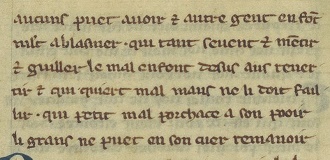 aucuns puet auoir ⁊ autre gent en fōt
mlt a blasmer · qui tant seuent ⁊ mētir
⁊ guiller le mal en font desus aus reuer
tir ⁊ qui quiert mal maus ne li doit fail
lir · qui petit mal porchace a son pooir
li grans ne puet en son cuer remanoir